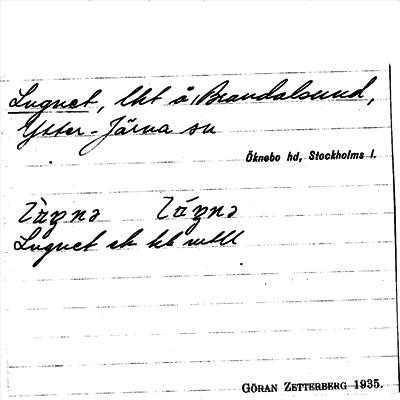 Lugnet, lht å Brandalsund,
Ytter-Järna sn
Öknebo hd, Stockholms l.
Lugnet ek kb
GÖRAN ZETTERBERG 1935.